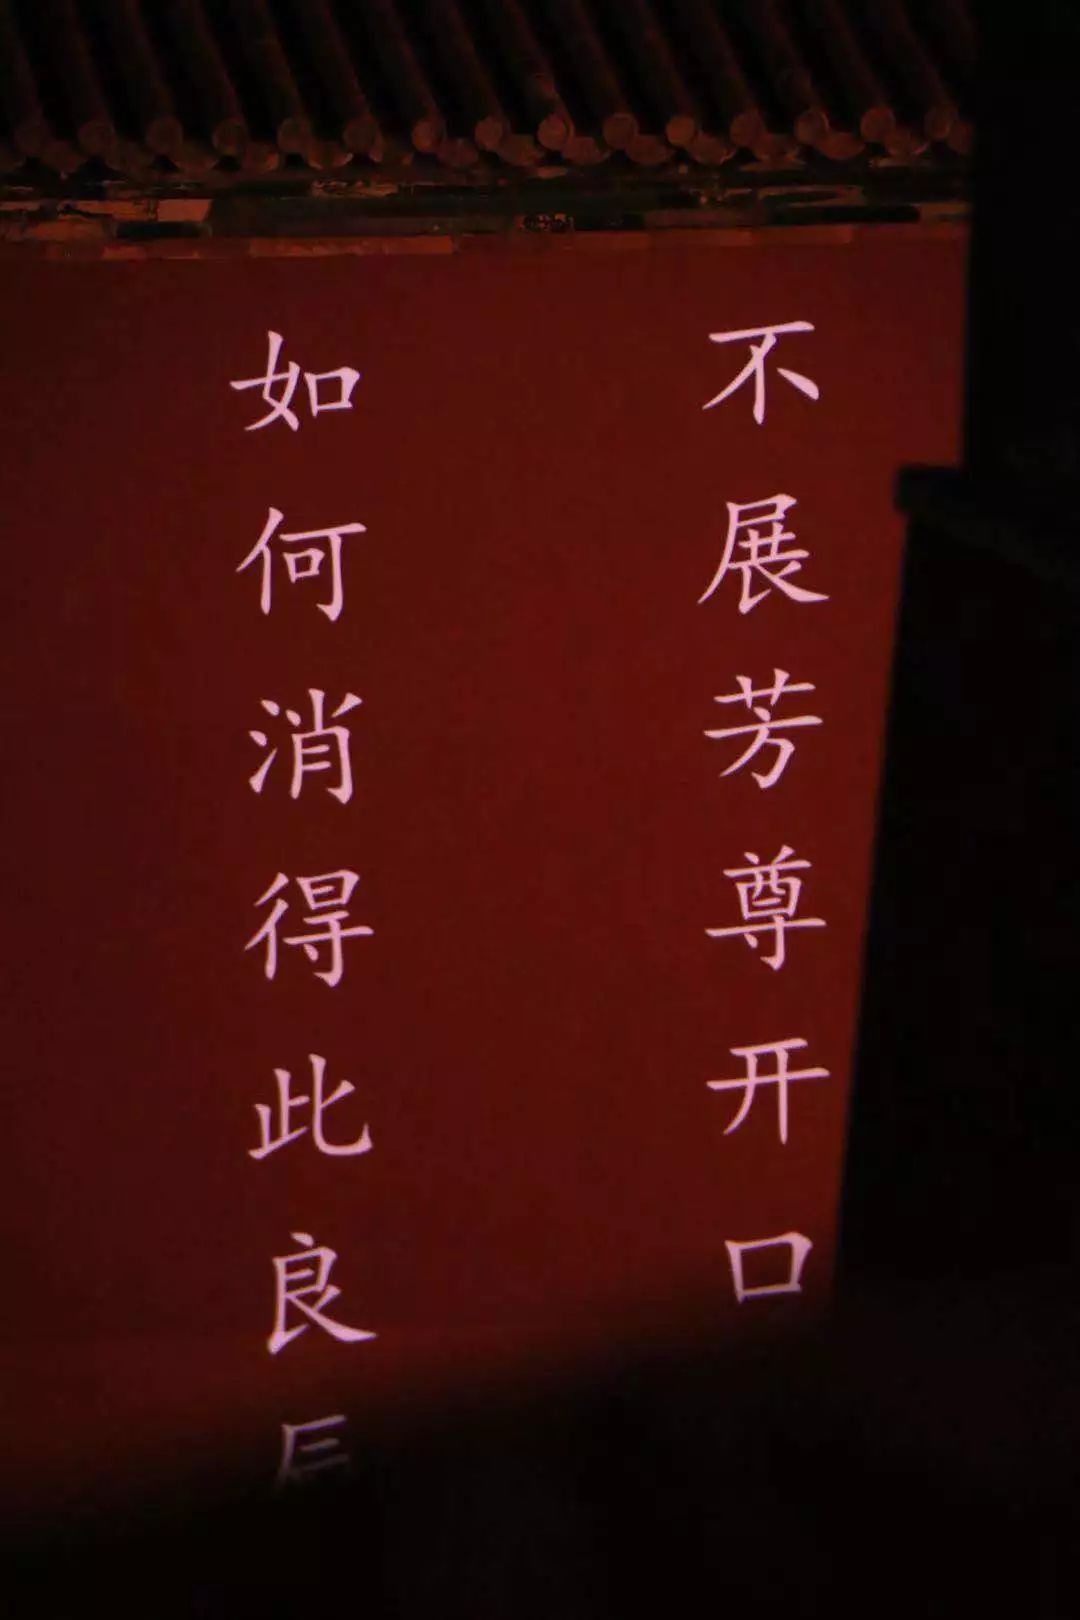 不展芳尊开口
如何消得此良